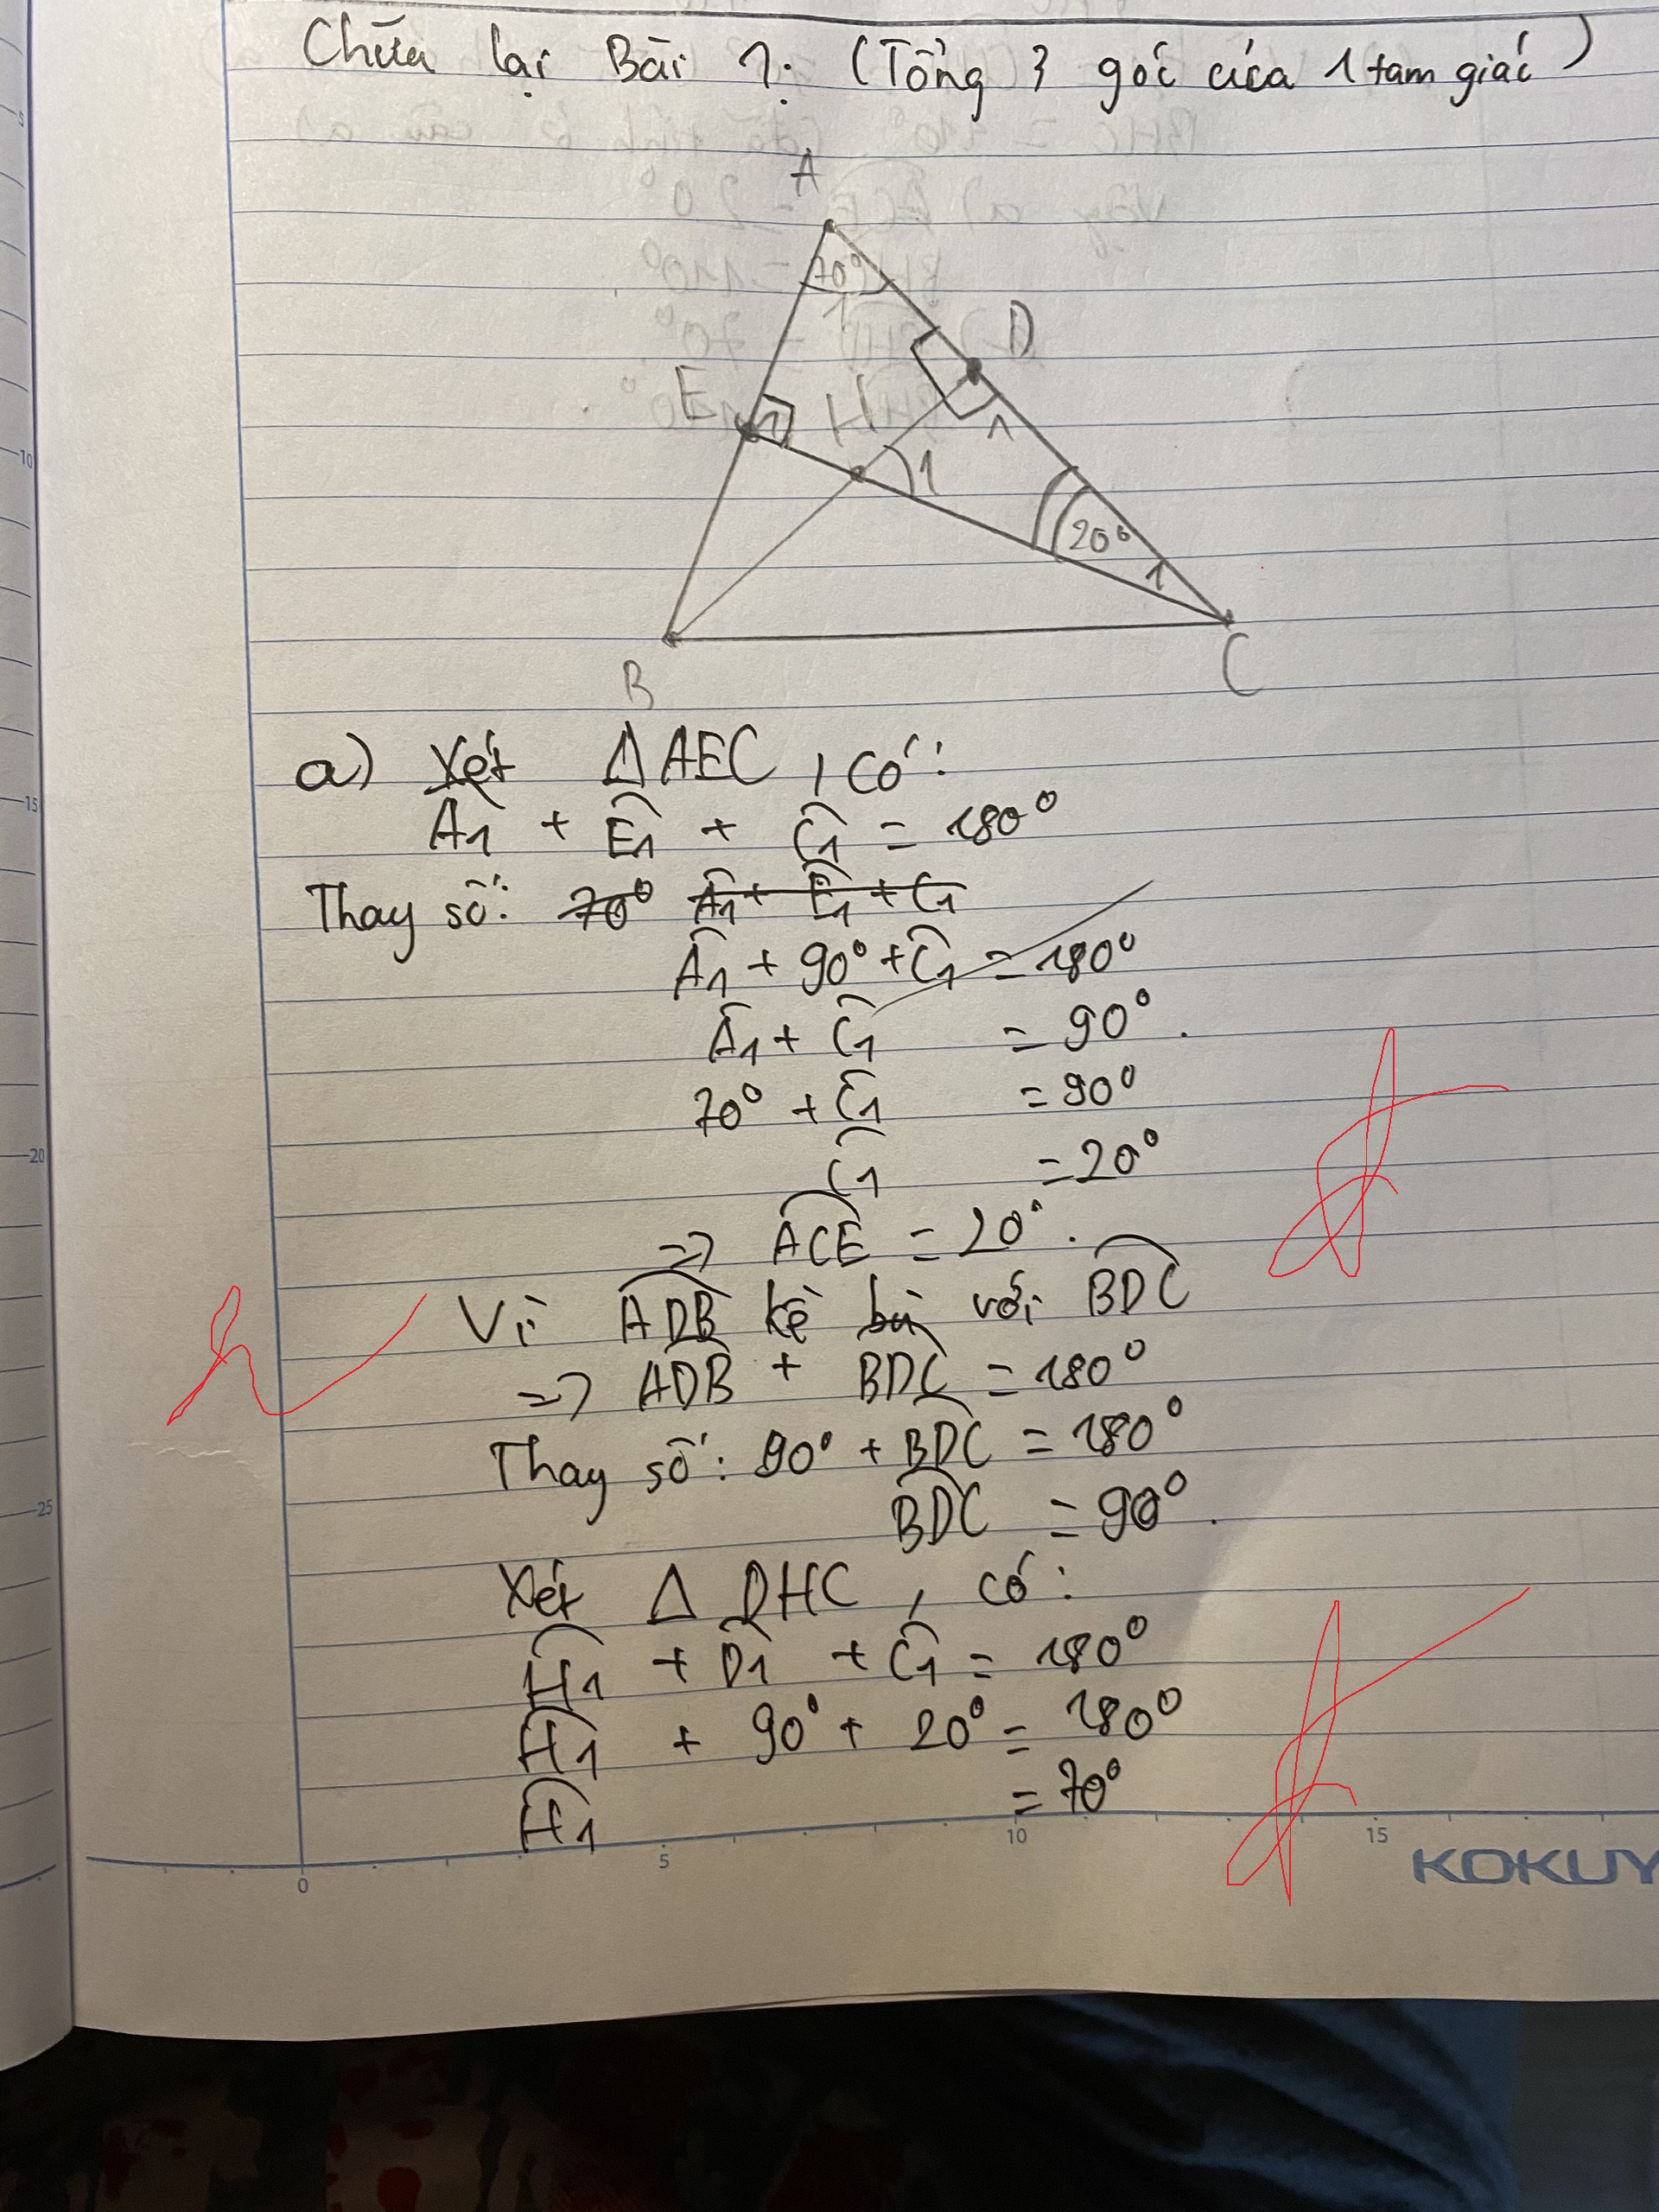 Chữa lại Bài 1: (Tổng 3 góc của 1 tam giác)
A
70°
1
D
E
1
H
1
1
20°
1
B
C
a) Xét ΔAEC, có:
Â1 + Ê1 + Ĉ1 = 180°
Thay số: 70° Â1 + Ê1 + Ĉ1
Â1 + 90° + Ĉ1 = 180°
Â1 + Ĉ1 = 90°.
70° + Ĉ1 = 90°
Ĉ1 = 20°
=> ACE = 20°.
Vì ADB kề bù với BDC
=> ADB + BDC = 180°
Thay số: 90° + BDC = 180°
BDC = 90°.
Xét Δ DHC, có:
Ĥ1 + D̂1 + Ĉ1 = 180°
Ĥ1 + 90° + 20° = 180°
Ĥ1 = 70°
0 5 10 15
KOKUY
5
10
15
20
25